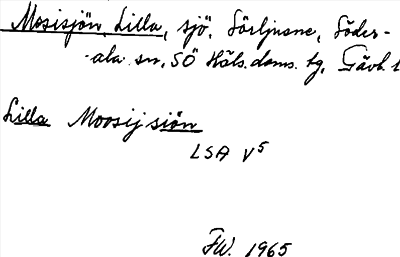 Mosisjön, Lilla, sjö, Sörljusne, Söder-
-ala sn, SÖ Häls. doms. tg, Gävl. l
Lilla Moosijsiön
LSA V5
FW. 1965